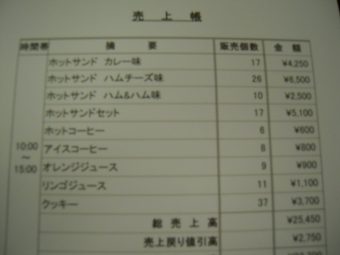 売上帳
時間帯 摘要 販売個数 金額
ホットサンド カレー味 17 ¥4,250
ホットサンド ハムチーズ味 26 ¥6,500
ホットサンド ハム&ハム味 10 ¥2,500
ホットサンドセット 17 ¥5,100
ホットコーヒー 6 ¥600
10:00 ～ 15:00 アイスコーヒー 8 ¥800
オレンジジュース 9 ¥900
リンゴジュース 11 ¥1,100
クッキー 37 ¥3,700
総売上高 ¥25,450
売上戻り値引高 ¥2,750